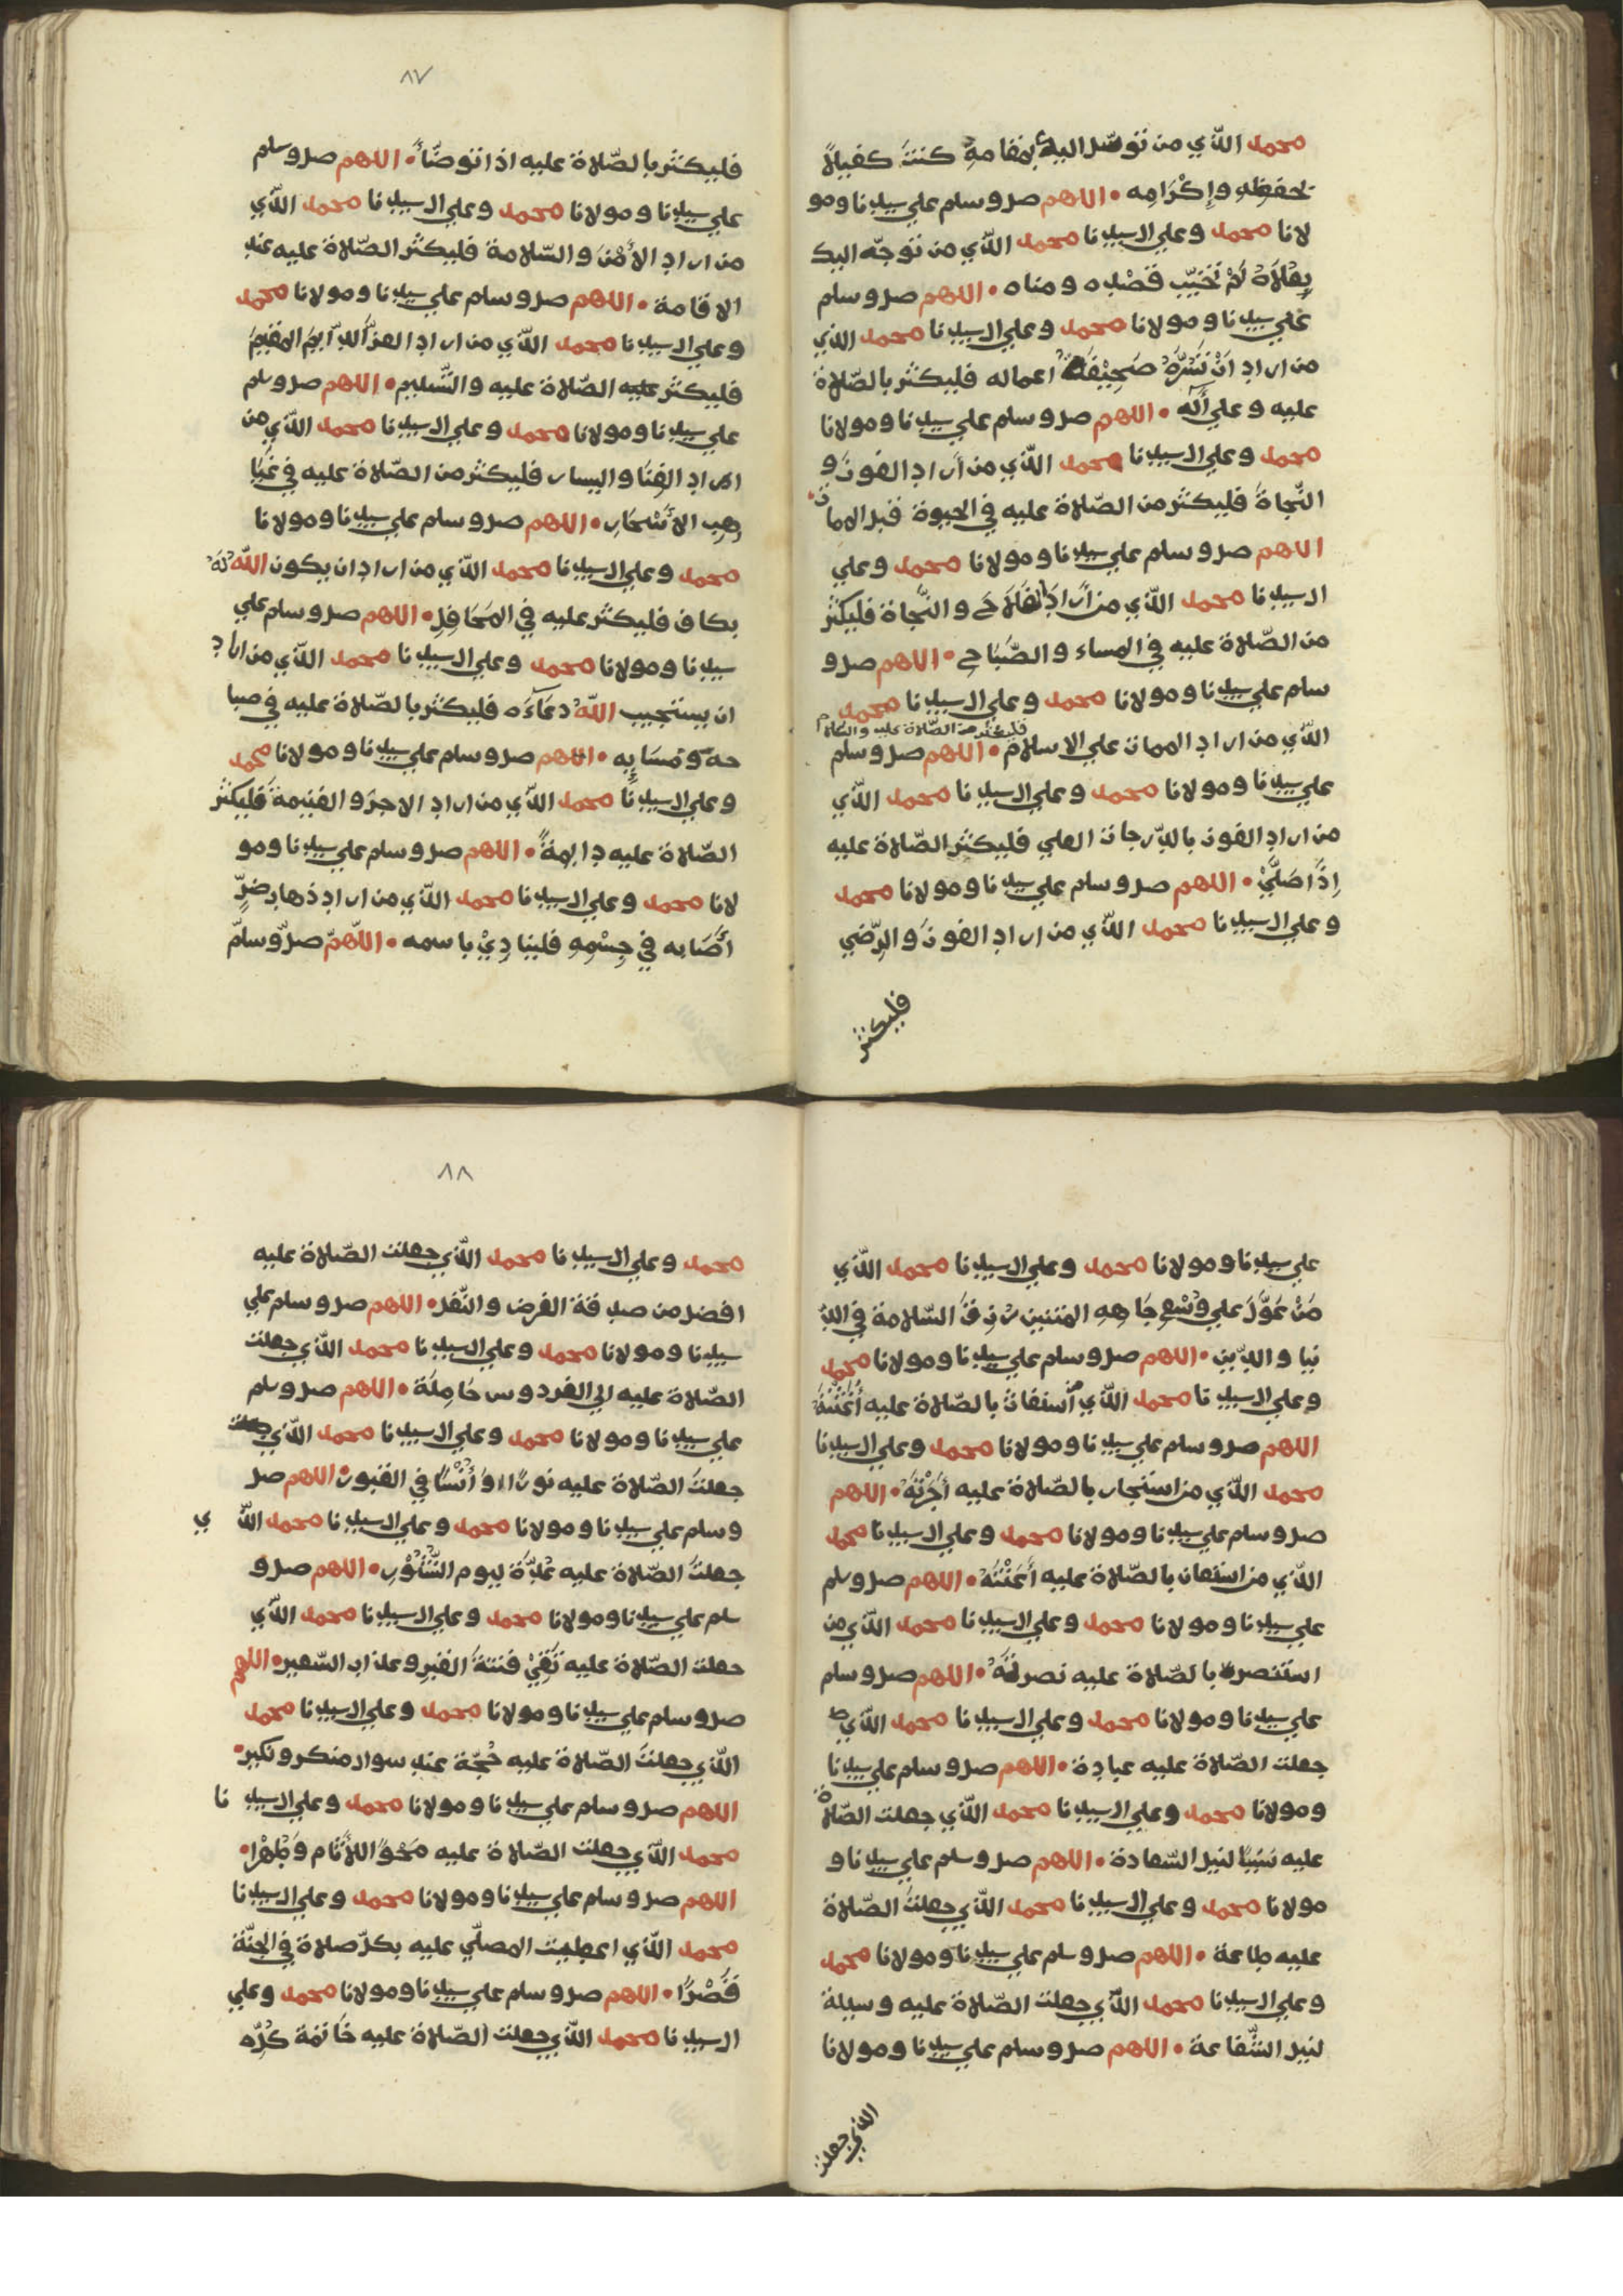 محمد الّذي من توسّل اليك بمقامه كنتَ كفيلاً
بحفظِهِ وإكْرَامِه • اللهم صل وسلم علي سيدنا ومو
لانا محمد وعلي ال سيدنا محمد الّذي من توجّه اليك
بِعُلَاهُ لَمْ تُخَيِّبْ قَصْدِه ومناه • اللهم صل وسلم
علي سيدنا ومولانا محمد وعلي ال سيدنا محمد الذي
من اراد اَنْ تَسُرَّهُ صَحِيْفَةُ اعماله فليكثر بالصّلاة
عليه وعلي أله • اللهم صل وسلم علي سيدنا ومولانا
محمد وعلي ال سيدنا محمد الّذي من أراد الفوزَ و
النّجاةَ فليكثر من الصّلاة عليه في الحيوة قبل المماتِ •
اللهم صل وسلم علي سيدنا ومولانا محمد وعلي
ال سيدنا محمد الّذي من أرادَ الفَلَاحَ والنَّجاة فليكثر
من الصّلاة عليه في المساء والصَّبَاحِ • اللهم صل و
سلم علي سيدنا ومولانا محمد وعلي ال سيدنا محمد
فليكثر من الصّلاة عليه والسّلام
الّذي من اراد الممات علي الاسلام • اللهم صل وسلم
علي سيدنا ومولانا محمد وعلي ال سيدنا محمد الّذي
من اراد الفوز بالدّرجات العلي فليكثر الصّلاة عليه
اِذَا صَلَّيْ • اللهم صل وسلم علي سيدنا ومولانا محمد
وعلي ال سيدنا محمد الّذي من اراد الفوزَ والرّضي
فليكثر
٨٧
فليكثر بالصّلاة عليه اذا توضّأَ • اللهم صل وسلم
علي سيدنا ومولانا محمد وعلي ال سيدنا محمد الّذي
من اراد الأمْنَ والسّلامة فليكثر الصّلاة عليه عند
الاقامة • اللهم صل وسلم علي سيدنا ومولانا محمد
وعلي ال سيدنا محمد الّذي من اراد العزَّ الدّايمَ المقيمَ
فليكثر عليه الصّلاة عليه والتّسليم • اللهم صل وسلم
علي سيدنا ومولانا محمد وعلي ال سيدنا محمد الّذي من
اراد الغِنَا واليسار فليكثر من الصّلاة عليه في غَيَا
هِبِ الأَسْحَارِ • اللهم صل وسلم علي سيدنا ومولانا
محمد وعلي ال سيدنا محمد الّذي من اراد ان يكون اللّهُ لَهُ
بكاف فليكثر عليه في المَحَافِلِ • اللهم صل وسلم علي
سيدنا ومولانا محمد وعلي ال سيدنا محمد الّذي من اراد
ان يستجيب اللّهُ دعَاءَه فليكثر بالصّلاة عليه في صبا
حه ومَسَايِه • اللهم صل وسلم علي سيدنا ومولانا محمد
وعلي ال سيدنا محمد الّذي من اراد الاجرَ والغنيمةَ فليكثر
الصّلاة عليه دايمةً • اللهم صل وسلم علي سيدنا ومو
لانا محمد وعلي ال سيدنا محمد الّذي من اراد ذهابَ ضرٍّ
أصَابه في جِسْمِهِ فلينادِيْ باسمه • اللّهمّ صلّ وسلّم
علي سيدنا ومولانا محمد وعلي ال سيدنا محمد الّذي
مَنْ عَوَّلَ علي وُسْعِ جَاهِهِ المتين رُزِقَ السّلامة في الدّ
نيا والدّين • اللهم صل وسلم علي سيدنا ومولانا محمد
وعلي ال سيدنا محمد الّذي من استغاث بالصّلاة عليه أَغَثْتَهُ
اللهم صل وسلم علي سيدنا ومولانا محمد وعلي ال سيدنا
محمد الّذي من استجار بالصّلاة عليه أجَرْتَهُ • اللهم
صل وسلم علي سيدنا ومولانا محمد وعلي ال سيدنا محمد
الّذي من استعان بالصّلاة عليه أَعَنْتَهُ • اللهم صل وسلم
علي سيدنا ومولانا محمد وعلي ال سيدنا محمد الّذي من
استنصر بالصّلاة عليه نصرتَهُ • اللهم صل وسلم
علي سيدنا ومولانا محمد وعلي ال سيدنا محمد الّذي
جعلت الصّلاة عليه عبادة • اللهم صل وسلم علي سيدنا
ومولانا محمد وعلي ال سيدنا محمد الّذي جعلت الصّلاة
عليه سَبَبًا لنيل السّعادة • اللهم صل وسلم علي سيدنا و
مولانا محمد وعلي ال سيدنا محمد الّذي جعلتَ الصّلاة
عليه طاعة • اللهم صل وسلم علي سيدنا ومولانا محمد
وعلي ال سيدنا محمد الّذي جعلت الصّلاة عليه وسيلة
لنيل الشّفاعة • اللهم صل وسلم علي سيدنا ومولانا
الذي جعلت
٨٨
محمد وعلي ال سيدنا محمد الّذي جعلت الصّلاة عليه
افضل من صدقة الفرض والنّفل • اللهم صل وسلم علي
سيدنا ومولانا محمد وعلي ال سيدنا محمد الّذي جعلت
الصّلاة عليه الي الفردوس حَامِلَة • اللهم صل وسلم
علي سيدنا ومولانا محمد وعلي ال سيدنا محمد الّذي
جعلتَ الصّلاة عليه نورًا وَأُنْسًا في القبور • اللهم صل
وسلم علي سيدنا ومولانا محمد وعلي ال سيدنا محمد الّذي
جعلتَ الصّلاة عليه عُدَّة ليوم النُّشُوْرِ • اللهم صل و
سلم علي سيدنا ومولانا محمد وعلي ال سيدنا محمد الّذي
جعلت الصّلاة عليه تَقِيْ فتنةَ القبرِ وعذاب السّعير • اللهم
صل وسلم علي سيدنا ومولانا محمد وعلي ال سيدنا محمد
الّذي جعلتَ الصّلاة عليه حُجّة عند سوال منكر ونكير •
اللهم صل وسلم علي سيدنا ومولانا محمد وعلي ال سيدنا
محمد الّذي جعلت الصّلاة عليه مَحْوًا للأثام وَطُهْرًا •
اللهم صل وسلم علي سيدنا ومولانا محمد وعلي ال سيدنا
محمد الّذي اعطيت المصلّي عليه بكلّ صلاة في الجنّة
قَصْرًا • اللهم صل وسلم علي سيدنا ومولانا محمد وعلي
ال سيدنا محمد الّذي جعلت الصّلاة عليه خَاتمة كُلِّه